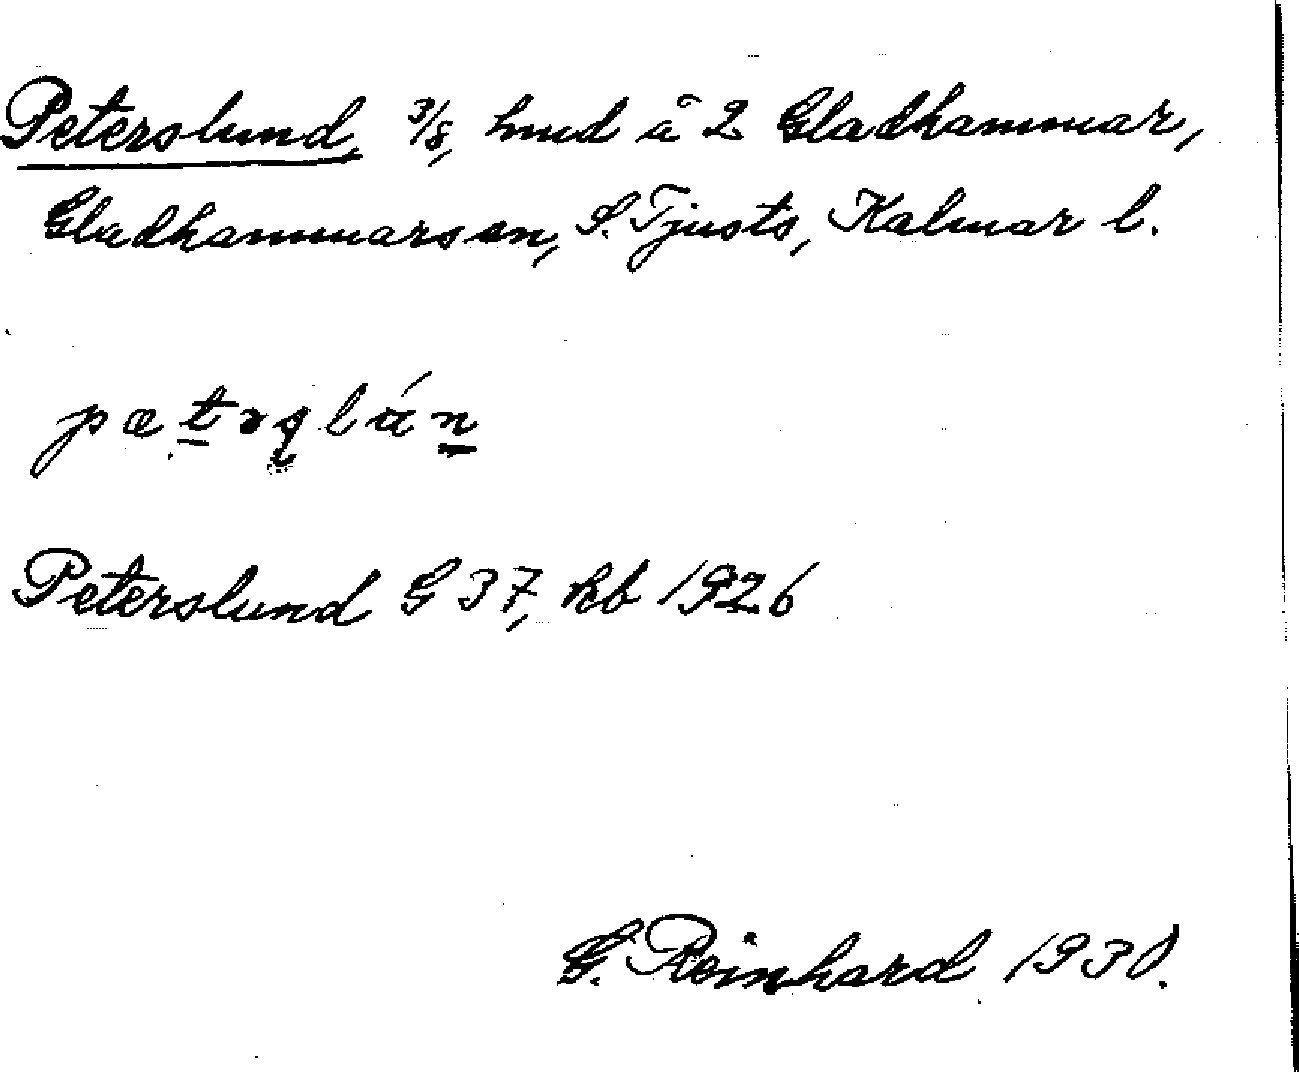 Peterslund, 3/8, hmd å 2 Gladhammar,
Gladhammars sn, S. Tjusts, Kalmar l.
Peterslund G 37, hb 1926
G. Reinhard 1930.